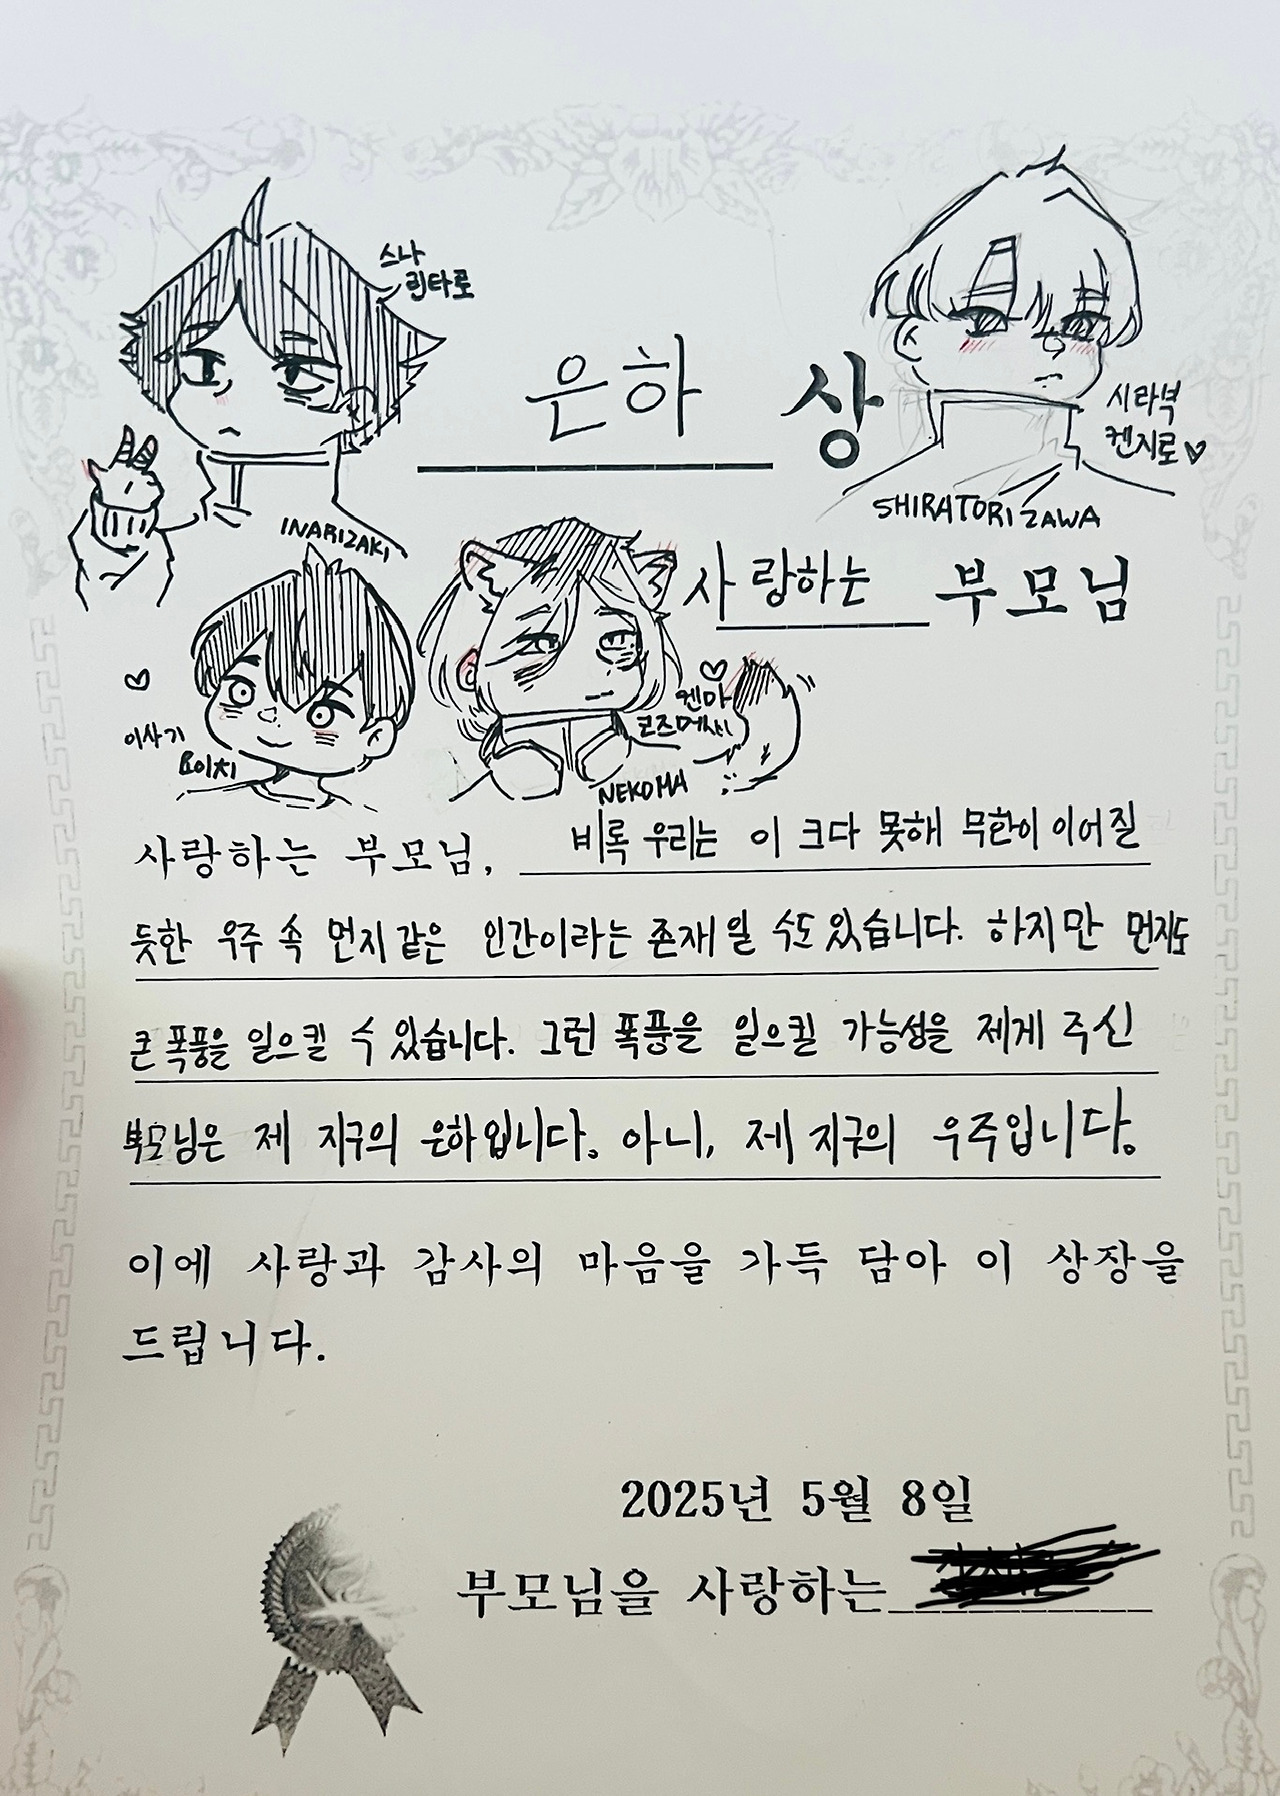 스나
린타로
은하 상
시라부
켄지로♡
INARIZAKI
SHIRATORIZAWA
사랑하는 부모님
이사기
요이치
켄마
코즈메
NEKOMA
사랑하는 부모님, 비록 우리는 이 크다 못해 무한이 이어질
듯한 우주 속 먼지같은 인간이라는 존재일 수도 있습니다. 하지만 먼지도
큰 폭풍을 일으킬 수 있습니다. 그런 폭풍을 일으킬 가능성을 제게 주신
부모님은 제 지구의 은하입니다. 아니, 제 지구의 우주입니다.
이에 사랑과 감사의 마음을 가득 담아 이 상장을
드립니다.
2025년 5월 8일
부모님을 사랑하는